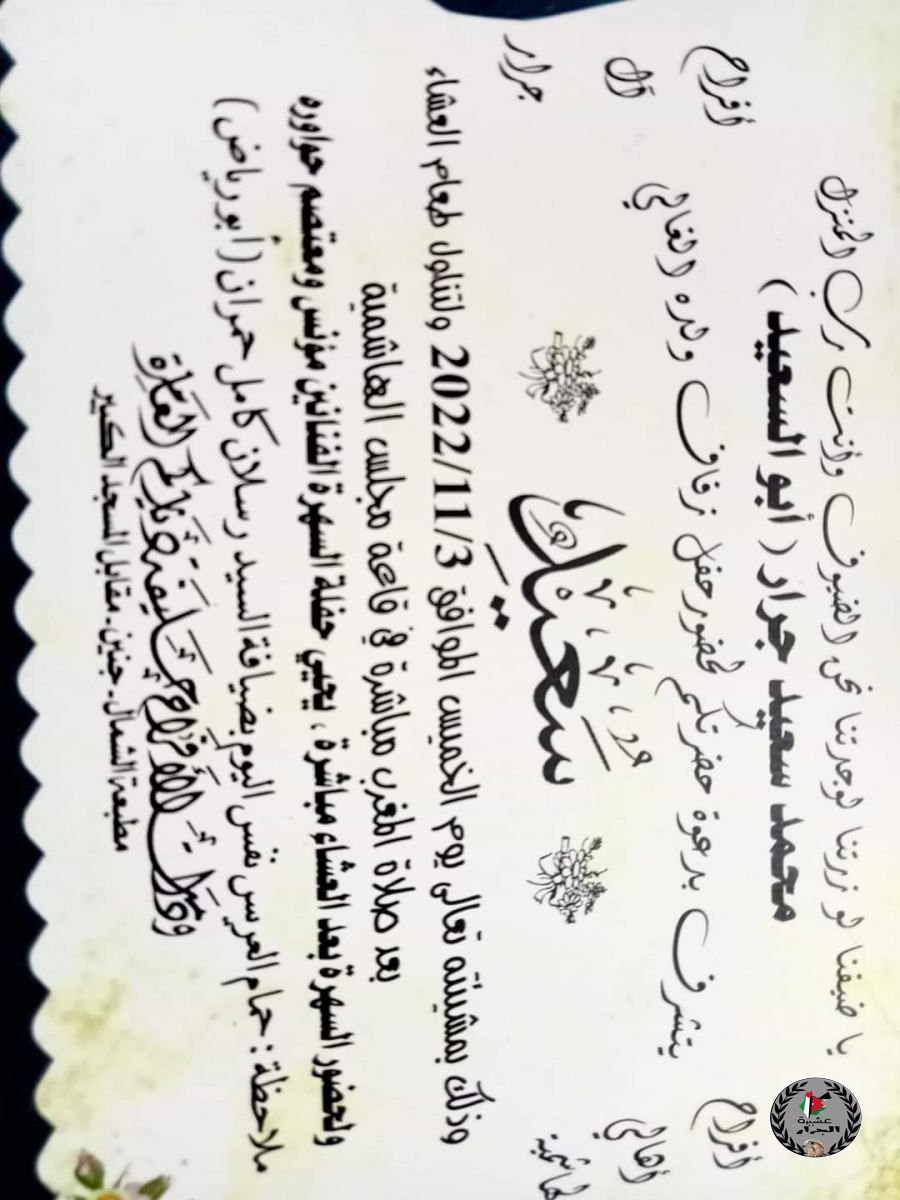 يا ضيفنا لو زرتنا لوجدتنا نحن الضيوف وأنت رب المنزل
أفراح
آل
جرار
أفراح
أهالي
الهاشمية
محمد سعيد جرار (أبو السعيد)
يتشرف بدعوة حضرتكم لحضور حفل زفاف ولده الغالي
سعيد
وذلك بمشيئته تعالى يوم الخميس الموافق 2022/11/3 ولتناول طعام العشاء
بعد صلاة المغرب مباشرة في قاعة مجلس الهاشمية
ولحضور السهرة بعد العشاء مباشرة ، يحيي حفلة السهرة الفنانين مؤنس ومعتصم حواوره
ملاحظة : حمام العريس نفس اليوم بضيافة السيد رسلان كامل حمران (أبو رياض)
ودامت الأفراح حليفة دياركم العامرة
مطبعة الشمال - جنين - مقابل المسجد الكبير
عشيرة
الجرار